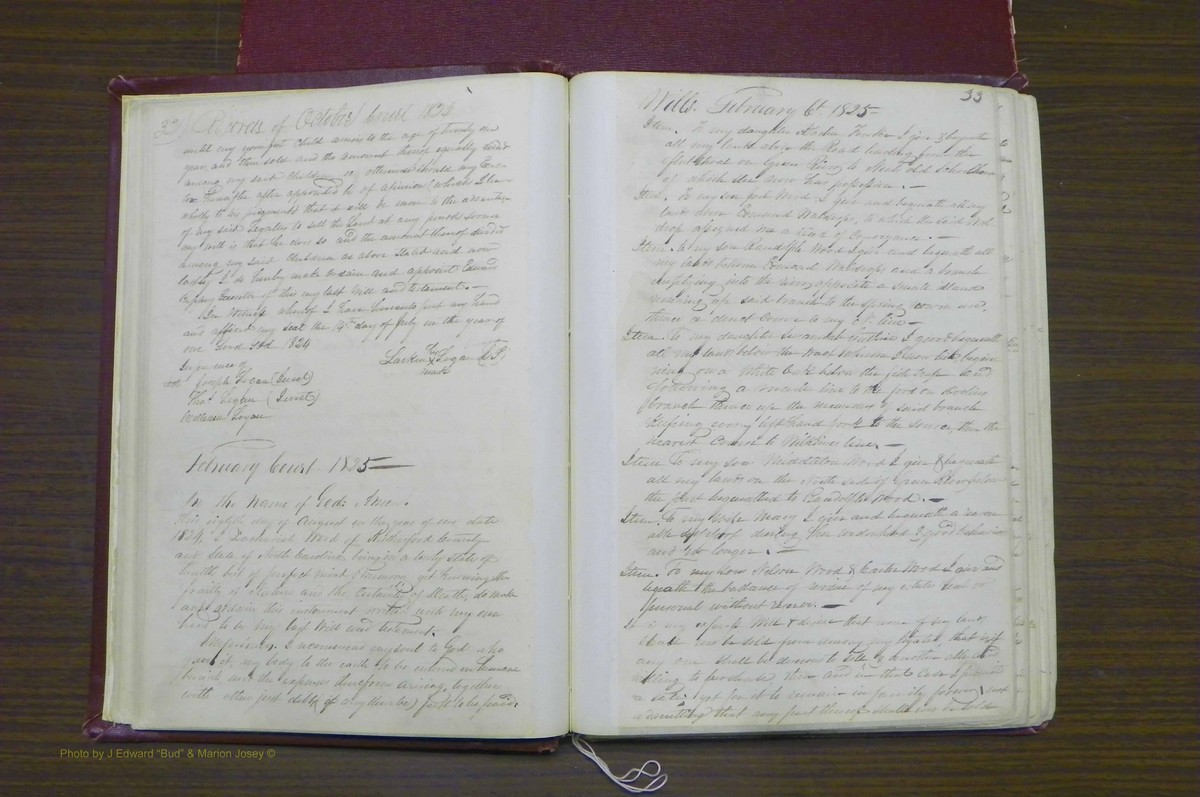 32 Records of October Court 1824
until my youngest Child arives to the age of twenty one
years and then sold and the amount thereof equally divided
among my said Children or otherwise should my Execu-
tor hereafter appointed be of opinion (which I leave
wholly to his judgments) that it will be more to the advantage
of my said Legatees to sell the Land at any period sooner
my will is that he does so and the amount thereof divided
among my said Children as above stated and now
lastly I do hereby make ordain and appoint Edward
Executor of this my last Will and testament.—
In Witness whereof I have hereunto put my hand
and affixed my seal the 14th day of July in the year of
our Lord 1824
In presence of
Larkin Logan
mark
Joseph Logan (Jurat)
Thos Logan (Jurat)
William Logan
February Court 1825—
In the Name of God. Amen.
This eighth day of August in the year of our date
1824. I Wood of Rutherford County
and State of North Carolina, being in a lowly state of
health but of perfect mind & memory, yet knowing the
frailty of Nature and the Certainty of Death, do make
and ordain this instrument with my own
hand to be my last Will and testament.
I recommend my soul to God who
gave it, my body to the earth to be interred in humane
burial and the expenses therefrom arising, together
with other just debts (if any there be) first to be paid.
Wills. February Ct 1825—
33
Item. To my daughter I give & bequeath
all my lands above the Road leading from the
on Green River to old School house
of which she now has possession.—
Item. To my son Wood I give and bequeath all my
lands down Edmund Waldrops, to which the said Wal-
drop assigned me a deed of Conveyance.—
Item. To my son Randolph Wood I give and bequeath all
my lands between Edmund Waldrops and a branch
emptying into the river opposite a small Island
running up said branch to the spring and
thence a direct course to my line—
Item. To my daughter Guthrie I give & bequeath
all my lands below the tract whereon I now live begin-
ning on a White Oak below the fish trap and
following a made line to the ford on
branch thence up the meanders of said branch
keeping every left hand fork to the source, then the
nearest course to line.—
Item To my son Middleton Wood I give & bequeath
all my lands on the North side of Green River below
the part bequeathed to Randolph Wood.—
Item. To my Wife Mary I give and bequeath a
all during her widowhood & good behavior
and no longer.—
Item. To my sons Nelson Wood & Wood I give and
bequeath the balance or residue of my estate real or
personal without reserve.—
It is my express Will & desire that none of my land
shall be sold from among my legatees, that if
any one shall be desirous to sell & another
willing to purchase, then and in that Case I
a sale, yet for it to remain in family forever, not
admitting that any part thereof should be sold
Photo by J Edward "Bud" & Marion Josey ©